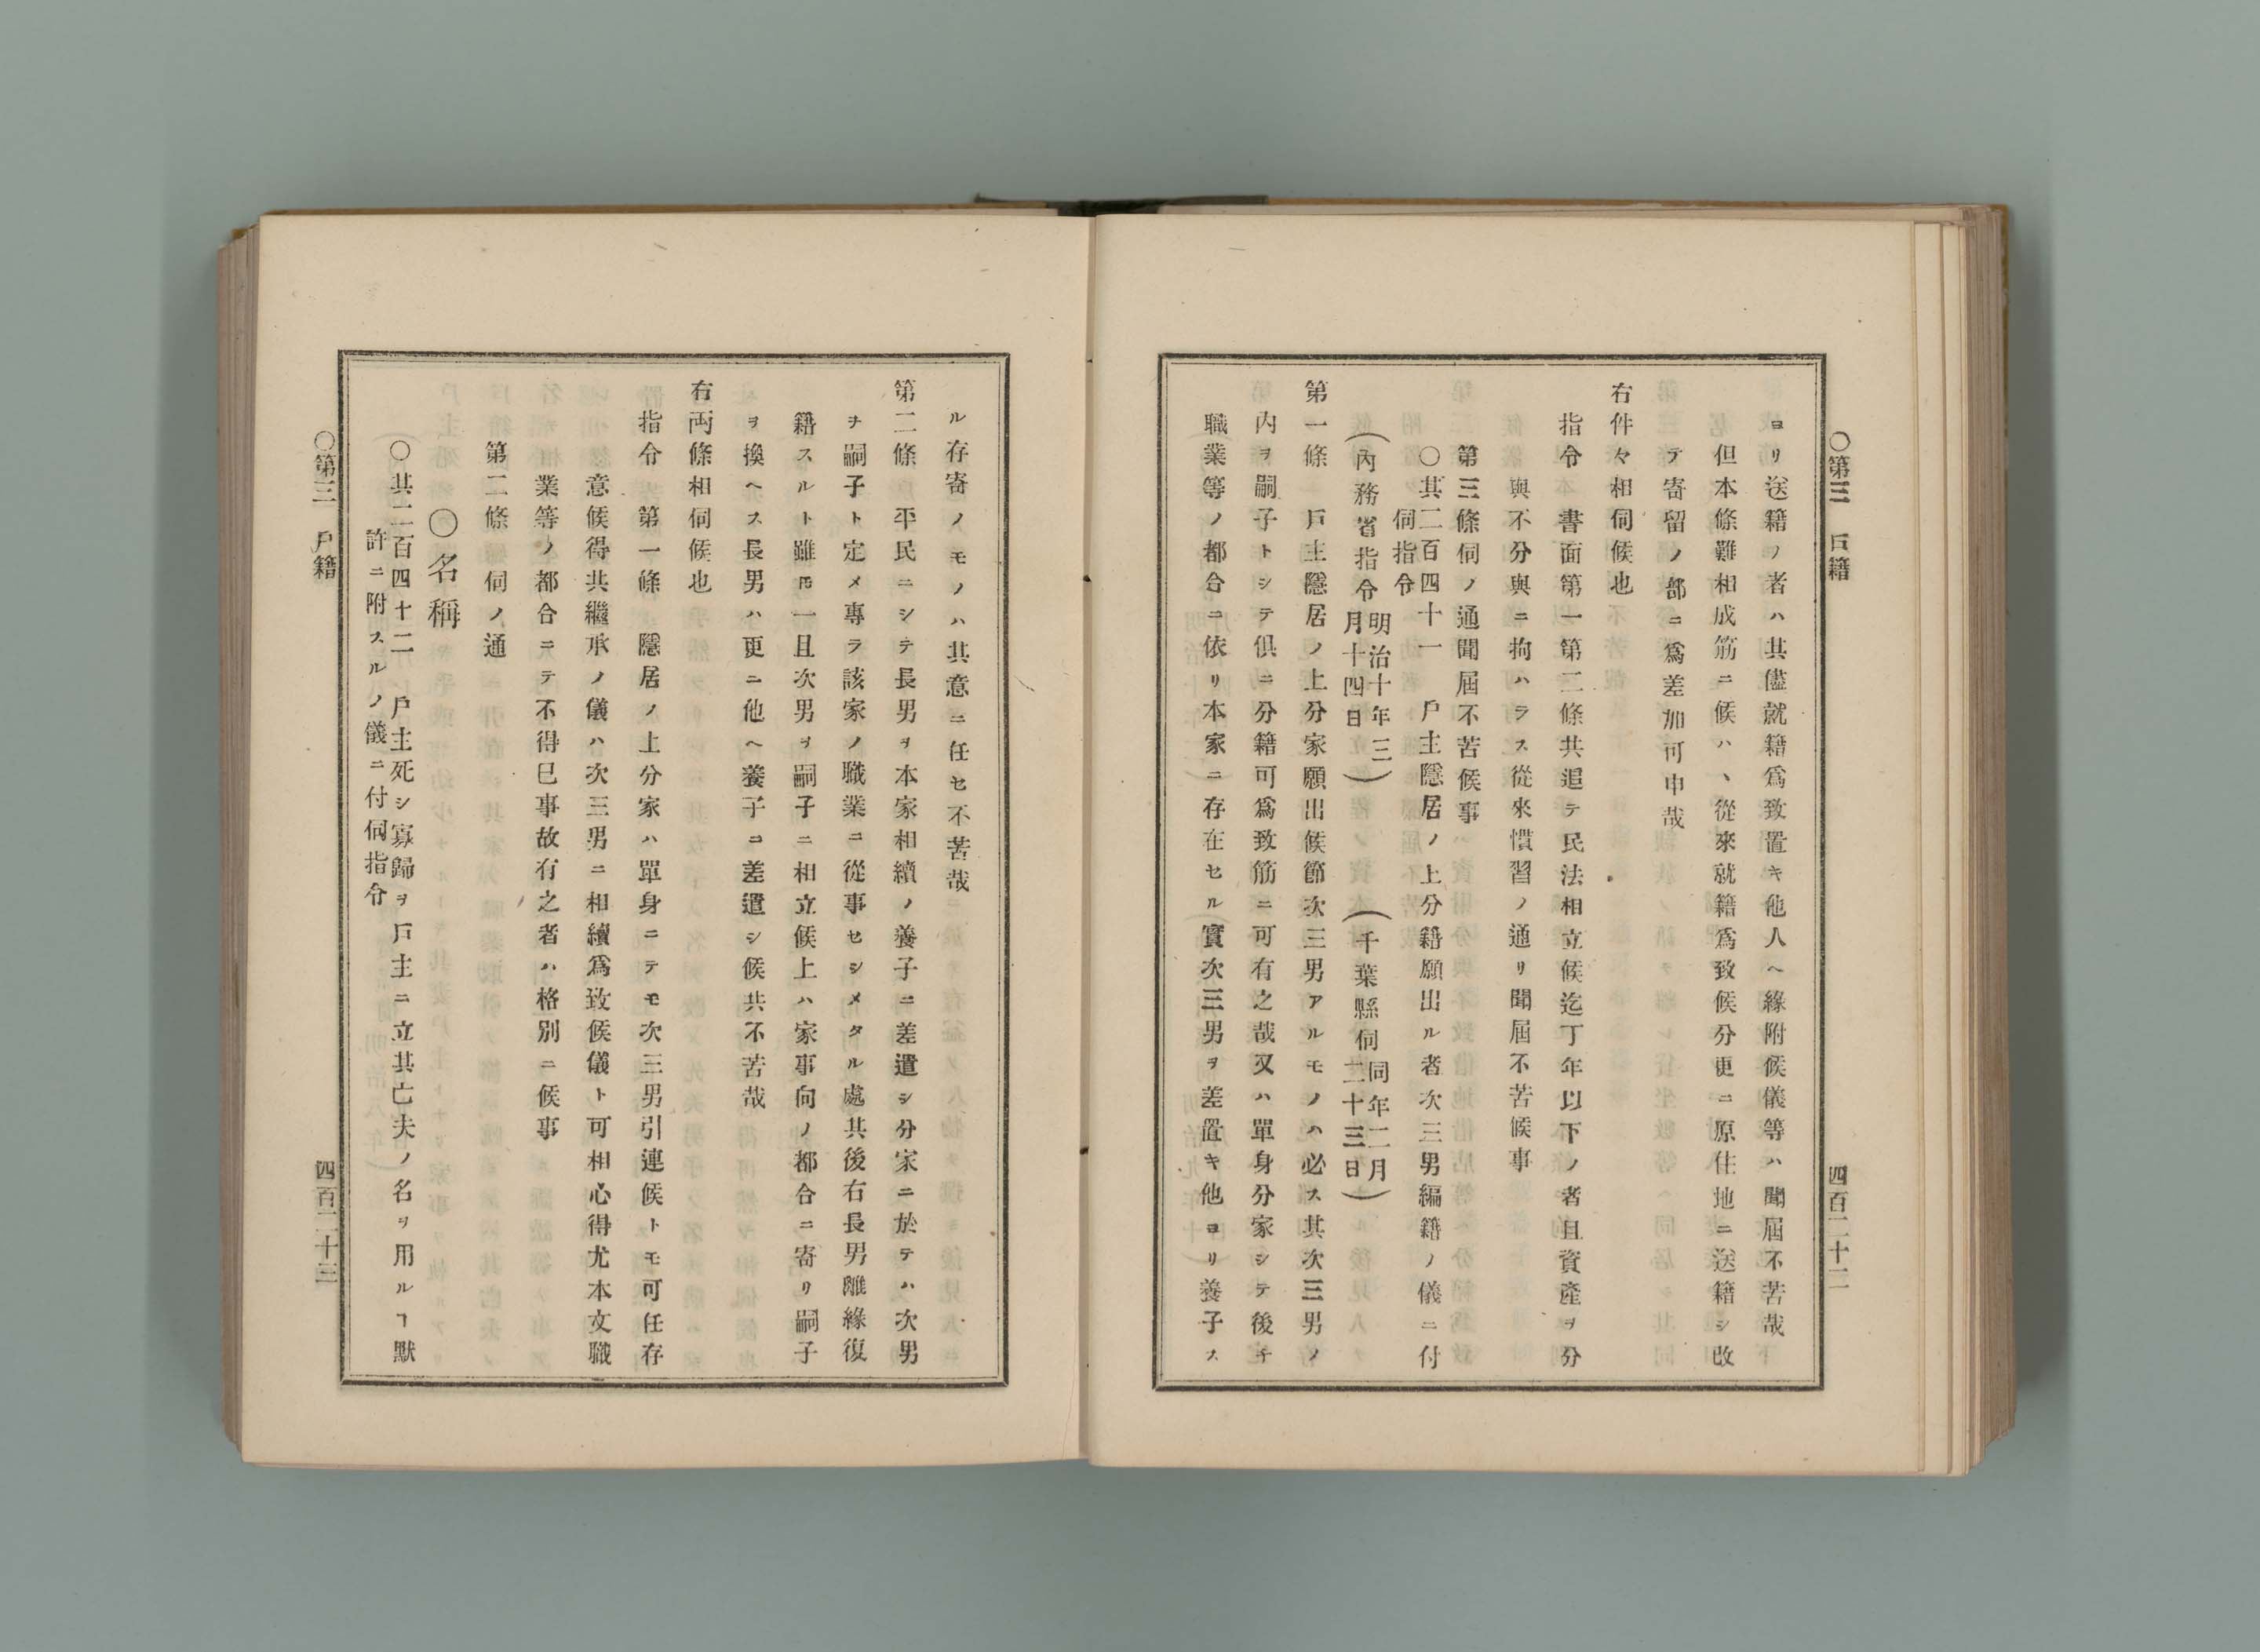 〇第三　戸籍
四百二十二
ヨリ送籍ノ者ハ其儘就籍爲致置キ他人ヘ緣附候儀等ハ聞屆不苦哉
但本條難相成筋ニ候ハヽ從來就籍爲致候分更ニ原住地ニ送籍シ改
テ寄留ノ部ニ爲差加可申哉
右件々相伺候也
指令　書面第一第二條共追テ民法相立候迄丁年以下ノ者且資產ヲ分
與不分與ニ拘ハラス從來慣習ノ通リ聞屆不苦候事
第三條伺ノ通聞屆不苦候事
〇其二百四十一　戸主隱居ノ上分籍願出ル者次三男編籍ノ儀ニ付
伺指令
（內務省指令明治十年三月十四日）　（千葉縣伺同年二月二十三日）
第一條　戸主隱居ノ上分家願出候節次三男アルモノハ必ス其次三男ノ
內ヲ嗣子トシテ俱ニ分籍可爲致筋ニ可有之哉又ハ單身分家シテ後チ
職業等ノ都合ニ依リ本家ニ存在セル實次三男ヲ差置キ他ヨリ養子ス
ル存寄ノモノハ其意ニ任セ不苦哉
第二條　平民ニシテ長男ヲ本家相續ノ養子ニ差遣シ分家ニ於テハ次男
ヲ嗣子ト定メ專ラ該家ノ職業ニ從事セシメタル處其後右長男離緣復
籍スルト雖𪜈一且次男ヲ嗣子ニ相立候上ハ家事向ノ都合ニ寄リ嗣子
ヲ換ヘス長男ハ更ニ他ヘ養子ニ差遣シ候共不苦哉
右両條相伺候也
指令　第一條　隱居ノ上分家ハ單身ニテモ次三男引連候トモ可任存
意候得共繼承ノ儀ハ次三男ニ相續爲致候儀ト可相心得尤本文職
業等ノ都合ニテ不得已事故有之者ハ格別ニ候事
第二條　伺ノ通
〇名稱
〇其二百四十二　戸主死シ寡歸ヲ戸主ニ立其亡夫ノ名ヲ用ルヿ默
許ニ附スルノ儀ニ付伺指令
〇第三　戸籍
四百二十三